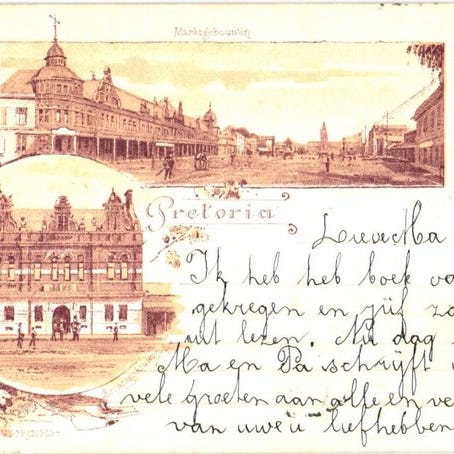 Marktgebouwen
Pretoria
Lieve Ma
Ik heb heb boek
gekregen en
uit lezen. Nu dag
Ma en Pa schrijft
vele groeten aan alle en ve
van uwe u liefhebben